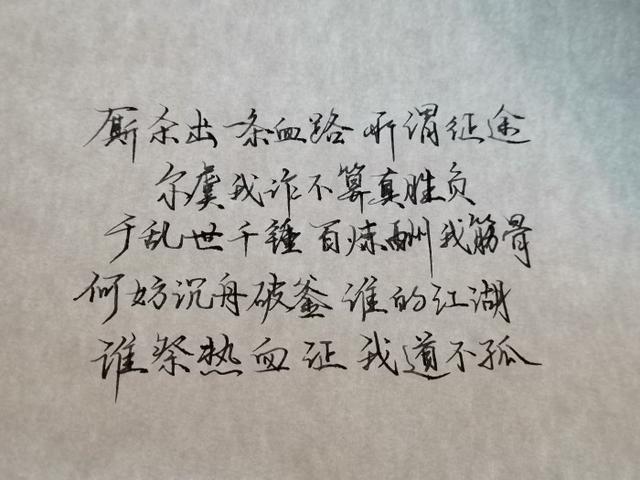 厮杀出一条血路 所谓征途
尔虞我诈不算真胜负
于乱世千锤百炼酬我筋骨
何妨沉舟破釜 谁的江湖
谁祭热血证我道不孤